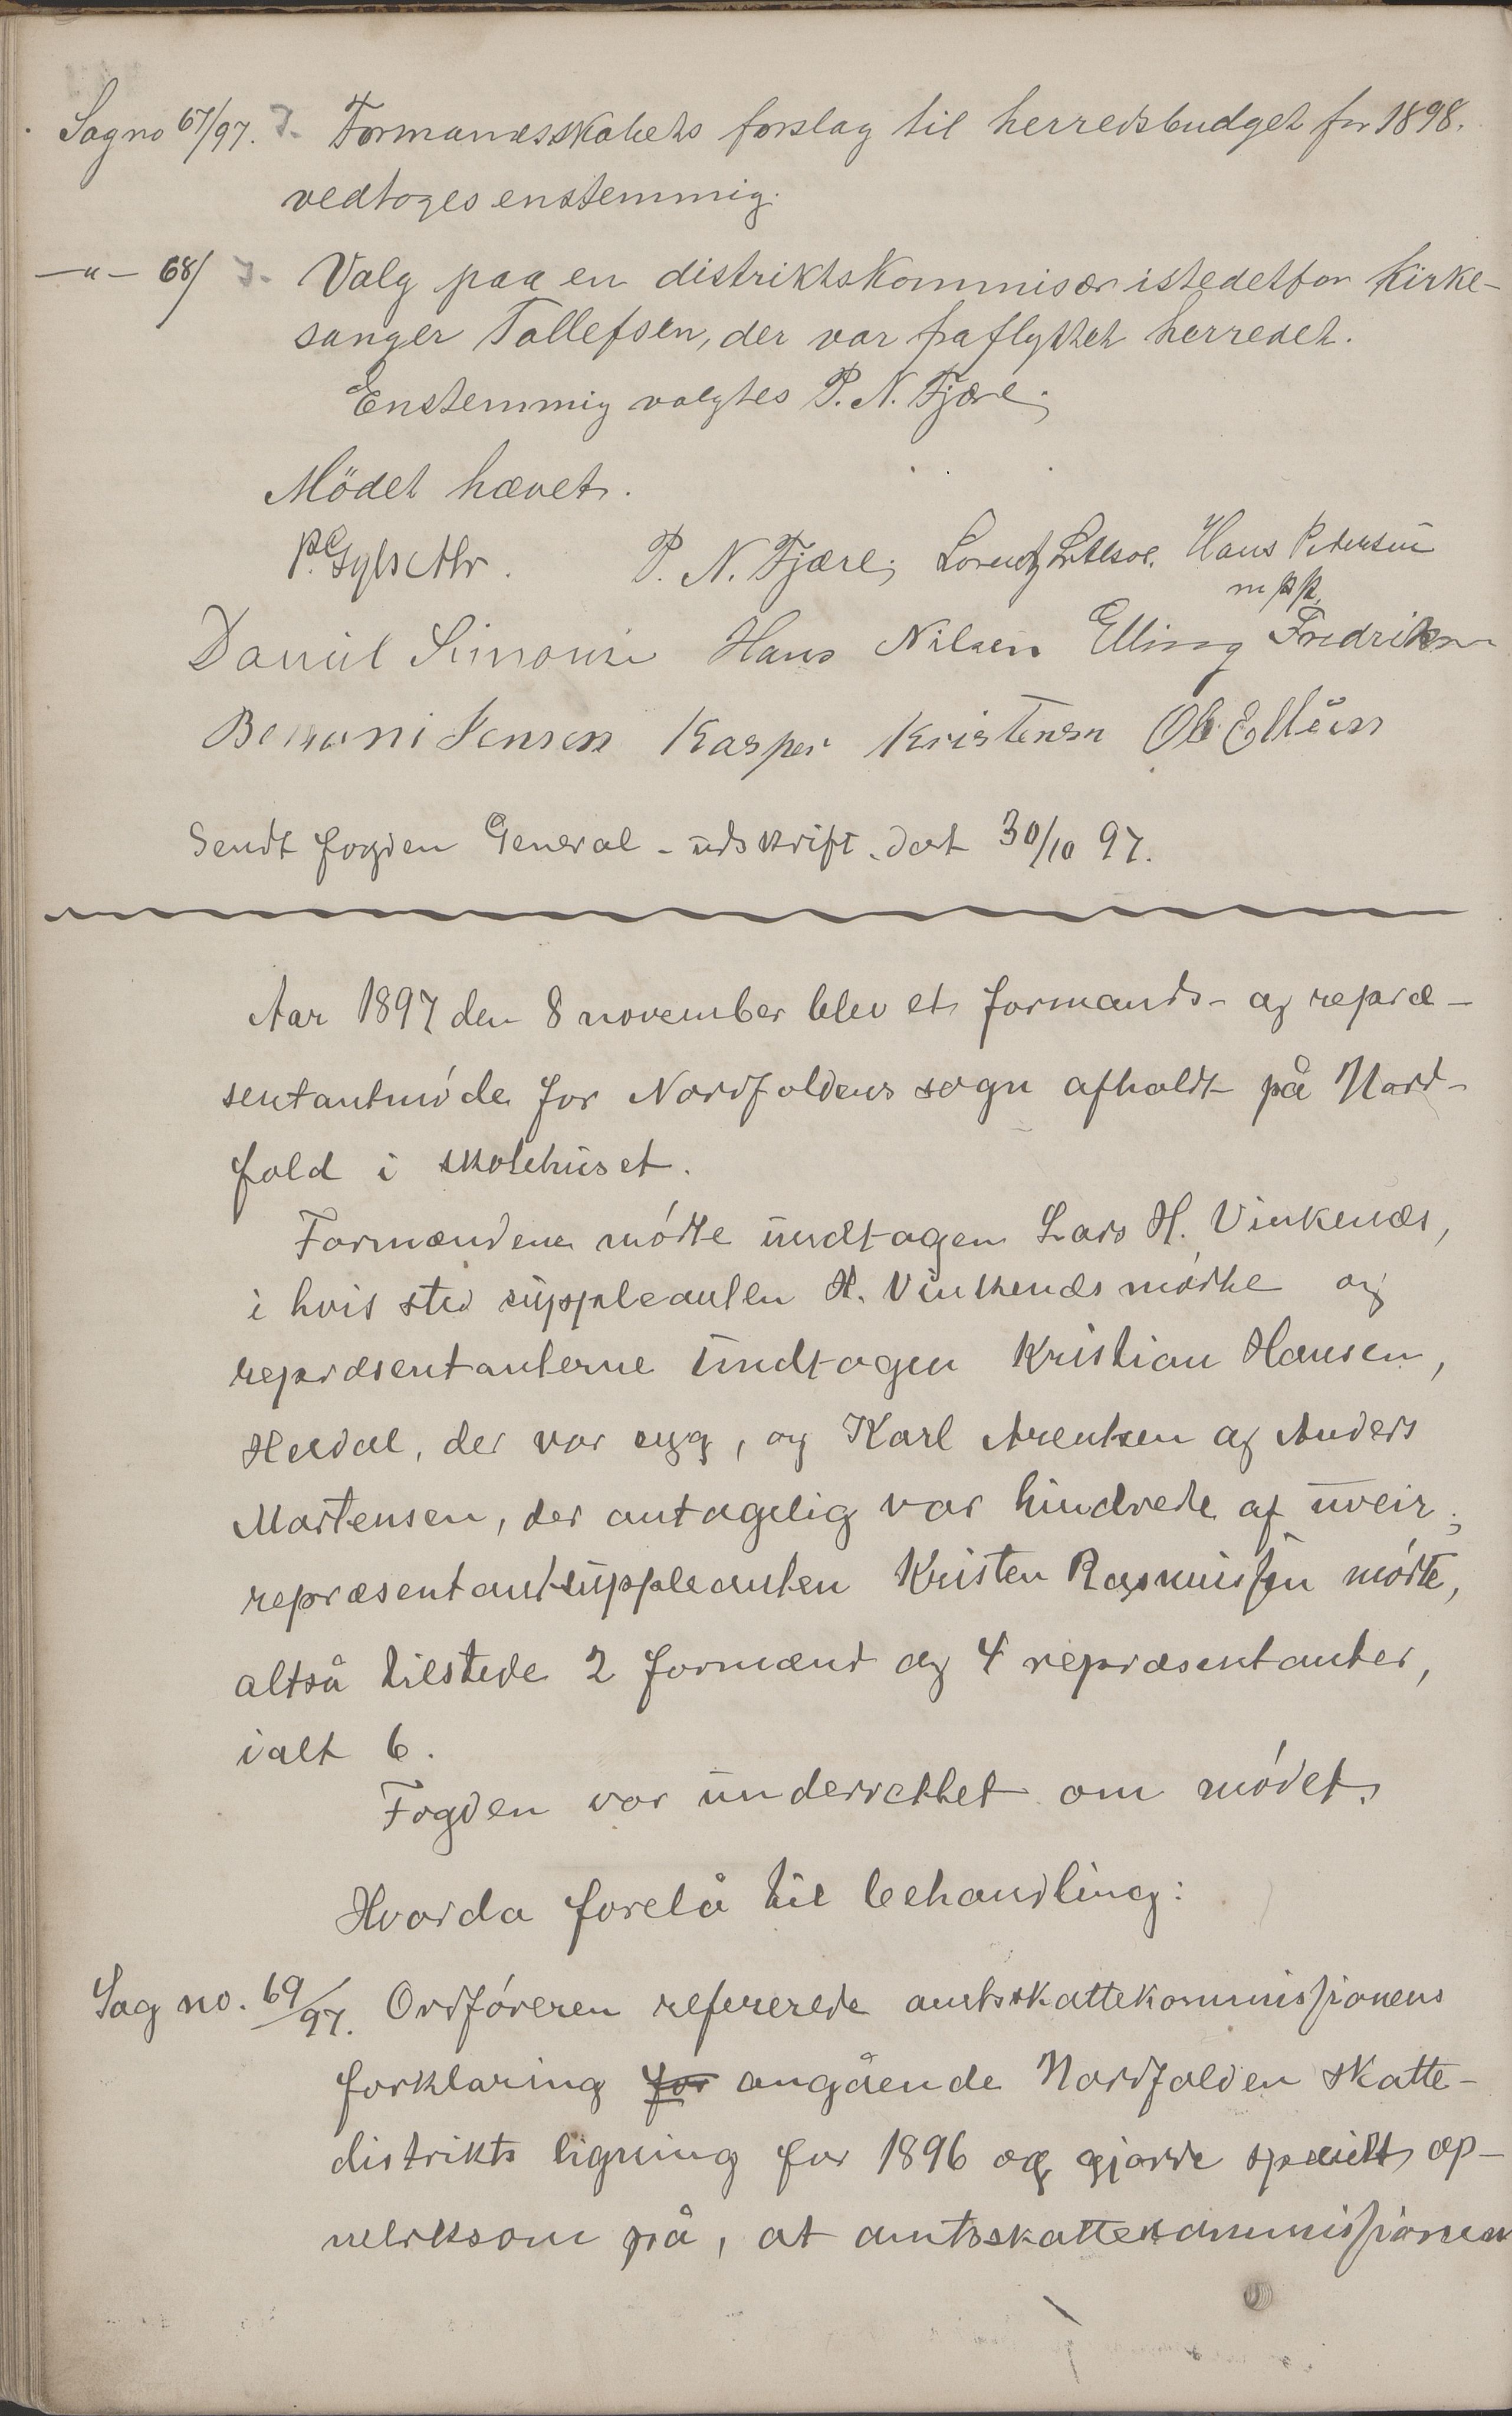 Sag no 67/97. Formandsskabets forslag til herredsbudget for 1898.
vedtoges enstemmig.
—"— 68/ Valg paa en distriktskommisær istedetfor kirke-
sanger Tollefsen, der var fraflyttet herredet.
Enstemmig valgtes P. N. Fjære.
Mödet hævet.
P. N. Fjære, Lorentz Hans Petersen
m p p
Daniel Simonsen Hans Nilsen Elling Fredriksen
Benoni Jensen Kasper Kristensen Ole Ellüvsen
Sendt fogden General-udskrift dat 30/10 97.
Aar 1897 den 8 november blev et formands- og repræ-
sentantmøde for Nordfoldens sogn afholdt på Nord-
fold i skolehuset.
Formændene mødte undtagen Lars H. Vinkenæs,
i hvis sted suppleanten H. Vinkenæs mødte og
repræsentanterne undtagen Kristian Hansen,
Heldal, der var syg, og Karl Arentsen og Anders
Mortensen, der antagelig var hindrede af uveir;
repræsentantsuppleanten Kristen Rasmussen mødte,
altså tilstede 2 formænd og 4 repræsentanter,
ialt 6.
Fogden var underrettet om mødet.
Hvorda forelå til behandling:
Sag no. 69/97. Ordføreren refererede amtsskattekommissionens
forklaring for angående Nordfolden skatte-
distrikts ligning for 1896 og gjorde specielt op-
merksom på, at amtsskattekommissionen